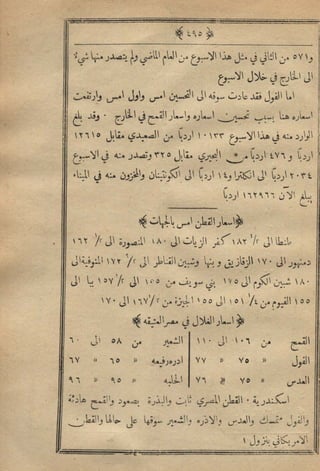 ﴿ ٤٩٥ ﴾
و٥٧١ من الثاني في مثل هذا الاسبوع من العام الماضي ولم يتصدر منها شيء
الى الخارج في خلال الاسبوع
اما الفول فقد عادت سوقه الى التحسين امس واول امس وارتفعت
اسعاره هنا بسبب تحسين اسعاره واسعار القمح في الخارج ٠ وقد بلغ
الوارد منه في هذا الاسبوع ١٠١٣٣ اردبًا من الصعيدي مقابل ١٢٦١٥
اردبًا و ٤٧٦ اردبًا من البحيري مقابل ٣٢٥ وتصدر منه في الاسبوع
٢٠٣٤ اردبًا الى انكلترا و١٤ اردبًا الى الكونتينان والمخزون منه في الميناء
يبلغ الآن ١٦٢٩٦٦ اردبا
﴿ اسعار القطن امس بالجهات ﴾
طنطا الى ١/٢ ١٨٢ كفر الزيات الى ١٨٠ المنصورة الى ١/٢ ١٦٢
دمنهور الى ١٧٠ الزقازيق وبنها وشبين القناطر الى ١/٢ ١٧٢ المنوفية الى
١٨٠ شبين الكوم الى ١٧٥ بني سويف من ١٥٥ الى ١/٢ ١٥٧ ببا الى
١٥٥ الفيوم من ١/٤ ١٥١ الى ١٥٥ الجيزة من ١/٢ ١٦٧ الى ١٧٠
﴿ اسعار الغلال في مصر العتيقه ﴾
القمح من ١٠٦ الى ١١٠ الشعير من ٥٨ الى ٦٠
الفول » ٧٥ » ٧٧ اذره رفيعه » ٦٥ » ٦٧
العدس » ٧٥ » ٧٦ الحلبه » ٩٥ » ٩٦
اسكندرية ٠ القطن المصري ثابت والبذرة بصعود والقمح هادئة
والفول متمسك والعدس والاذره والشعير سوقها على حالها والقطن
الامريكاني بنزول ١